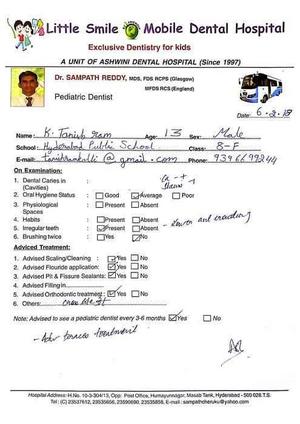 Little Smile Mobile Dental Hospital
Exclusive Dentistry for kids
A UNIT OF ASHWINI DENTAL HOSPITAL (Since 1997)
Dr. SAMPATH REDDY, MDS, FDS RCPS (Glasgow)
MFDS RCS (England)
Pediatric Dentist
Date: 6.2.18
Name: K. Tanish ram Age: 13 Sex: Male
School: Hyderabad Public School Class: 8-F
E-mail: @gmail.com Phone: 9396699244
On Examination:
1. Dental Caries in (Cavities)
2. Oral Hygiene Status : Good Average Poor
3. Physiological Spaces : Present Absent
4. Habits : Present Absent
5. Irregular teeth : Present Absent - Lower ant crowding
6. Brushing twice : Yes No
Adviced Treatment:
1. Advised Scaling/Cleaning : Yes No
2. Advised Flouride application: Yes No
3. Advised Pit & Fissure Sealants: Yes No
4. Advised Filling in
5. Advised Orthodontic treatment: Yes No
6. Others:
Note: Advised to see a pediatric dentist every 3-6 months Yes No
- Adv braces treatment
Hospital Address: H.No. 10-3-304/13, Opp: Post Office, Humayunnagar, Masab Tank, Hyderabad - 500 028 T.S.
Tel: (C) 23537612, 23535656, 23590690, 23535858, E-mail: sampathcheruku@yahoo.com